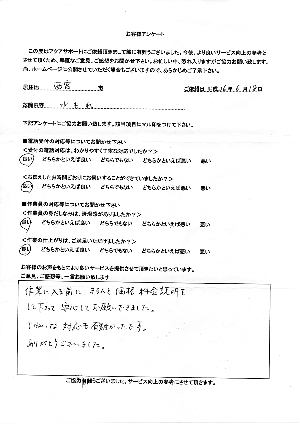 お客様アンケート
この度はアクアサポートへご依頼頂きまして誠に有難うございました。今後、より良いサービス向上の参考と
させて頂くため、率直なご意見、ご感想をお聞かせ下さい。お忙しい中、恐れ入りますがご協力お願い致します。
尚、ホームページに公開させていただく場合もございますので、あらかじめご了承下さい。
西宮 市
ご依頼日 平成 26年 6月 18日
水もれ
下記アンケートにご協力お願いします。該当項目に○印をつけて下さい。
■電話受付の対応等についてお聞かせ下さい
良い どちらかといえば良い どちらでもない どちらかといえば悪い 悪い
良い どちらかといえば良い どちらでもない どちらかといえば悪い 悪い
■作業員の対応等についてお聞かせ下さい
＜作業員の身だしなみは、清潔感がありましたか？＞
良い どちらかといえば良い どちらでもない どちらかといえば悪い 悪い
＜作業の仕上がりは、ご満足いただけましたか？＞
良い どちらかといえば良い どちらでもない どちらかといえば悪い 悪い
お客様のお声をもとにより良いサービスを提供させて頂きたいと思っています。
ご意見、ご感想等、一言お願いします
作業に入る前に、きちんと価格、料金説明を
して下さって安心してお願いできました。
対応も有難かったです。
ありがとうございました。
ご協力有難うございました。サービス向上の参考にさせて頂きます。